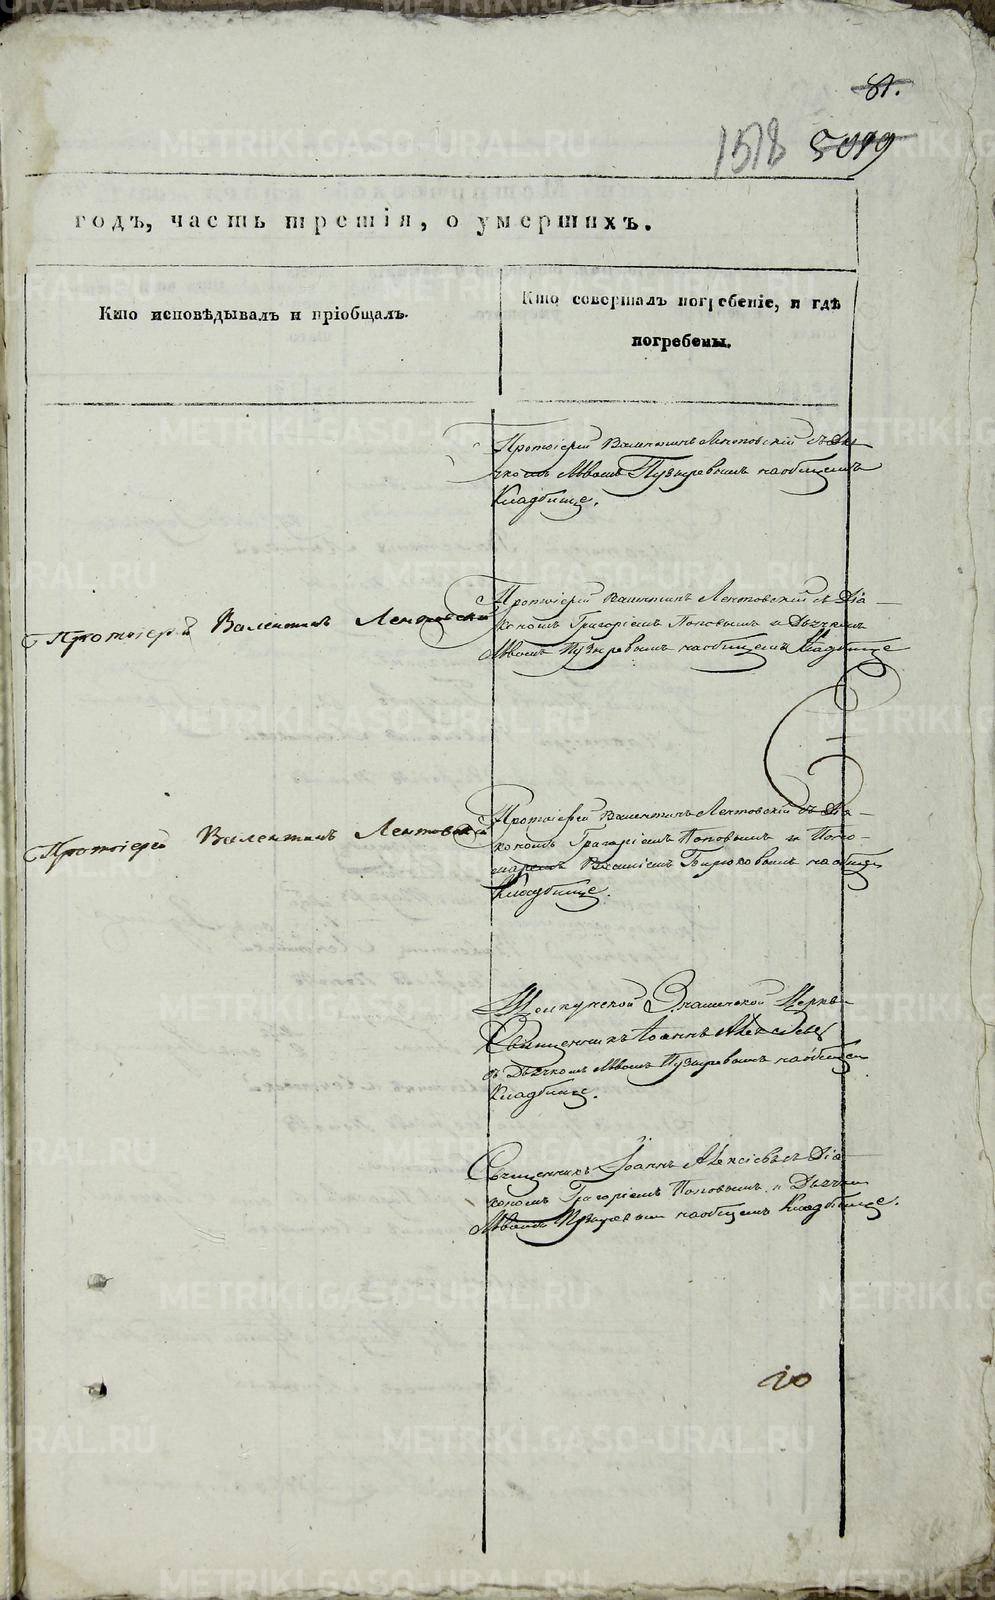 81.
1518 5099
годъ, часть третія, о умершихъ.
Кто исповѣдывалъ и пріобщалъ.
Кто совершалъ погребеніе, и гдѣ
погребены.
Протоіерей Валентинъ Лентовскій съ Дья-
чкомъ Львомъ Пузыревымъ на общемъ
Кладбище.
Протоіерей Валентинъ Лентовскій
Протоіерей Валентинъ Лентовскій съ Діа-
кономъ Григоріемъ Поповымъ и Дьячкомъ
Львомъ Пузыревымъ на общемъ Кладбище
Протоіерей Валентинъ Лентовскій
Протоіерей Валентинъ Лентовскій съ Діа-
кономъ Григоріемъ Поповымъ и Поно-
маремъ Бирюковымъ на общем
Кладбище.
Церкви
Священникъ Іоаннъ Алексіевъ
съ Дьячкомъ Львомъ Пузыревымъ на общем
Кладбище.
Священникъ Іоаннъ Алексіевъ съ Діа-
кономъ Григоріемъ Поповымъ и Дьячком
Львомъ Пузыревымъ на общемъ Кладбище.
20
METRIKI.GASO-URAL.RU